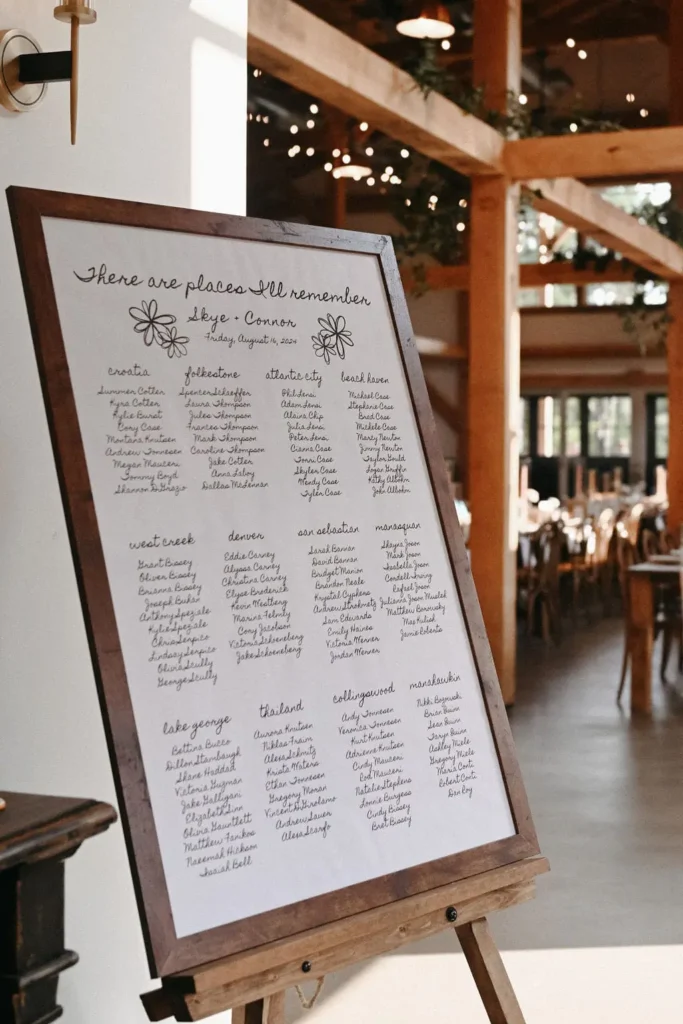 There are places I'll remember
Skye + Connor
Friday, August 16, 2024
croatia
Summer Cotler
Kyra Cotler
Kylie Burst
Cory Case
Montana Knutsen
Andrew Tonnesen
Megan Mauceri
Tommy Boyd
Shannon DiGrazio
folkestone
Spencer Schaeffer
Laura Thompson
Jules Thompson
Frances Thompson
Mark Thompson
Caroline Thompson
Jake Cotler
Anna Laboy
Dallas McLennan
atlantic city
Phil Lensi
Adam Lensi
Alaina Chip
Julia Lensi
Peter Lensi
Cianna Case
Torri Case
Skyler Case
Wendy Case
Tyler Case
beach haven
Michael Case
Stephanie Case
Brad Case
Michele Case
Marty Newton
Jimmy Newton
Taylor Gould
Logan Griffin
Kathy Alboum
John Alboum
west creek
Grant Bissey
Oliver Bissey
Brianna Bissey
Joseph Buhan
Anthony Speziale
Kylie Speziale
Chris Serpico
Lindsay Serpico
Olivia Scully
George Scully
denver
Eddie Carney
Alyssa Carney
Christina Carney
Elyse Broderick
Kevin Westberg
Marina Felmly
Cory Jacobson
Victoria Schoeneberg
Jake Schoeneberg
san sebastian
Sarah Bannan
David Bannan
Bridget Marion
Brandon Neale
Krystal Cyphers
Andrew Strohmetz
Sam Edwards
Emily Haines
Victoria Werner
Jordan Werner
manasquan
Shayna Joson
Mark Joson
Isabella Joson
Cordell
Rafael Joson
Julianna Joson
Matthew Borowsky
Max Kulish
Jamie Roberto
lake george
Bettina Bucco
Dillon Stambaugh
Shane Haddad
Victoria Guzman
Jake Galligani
Elizabeth Sinn
Olivia Gauntlett
Matthew Farikos
Naeemah Hickson
Isaiah Bell
thailand
Aurora Knutsen
Niklas Fraim
Alesa Schmitz
Krista Waters
Ethan Tonnesen
Gregory Moran
Vincent DiGirolamo
Andrew Sauer
Alesa Scarfo
collingswood
Andy Tonnesen
Veronica Tonnesen
Kurt Knutsen
Adrienne Knutsen
Cindy Mauceri
Rod Mauceri
Natalie Stephens
Lonnie Burgess
Cindy Bissey
Bret Bissey
manahawkin
Nikki
Brian Quinn
Sean Quinn
Taryn Quinn
Ashley Miele
Gregory Miele
Maria Conti
Robert Conti
Dan Roy